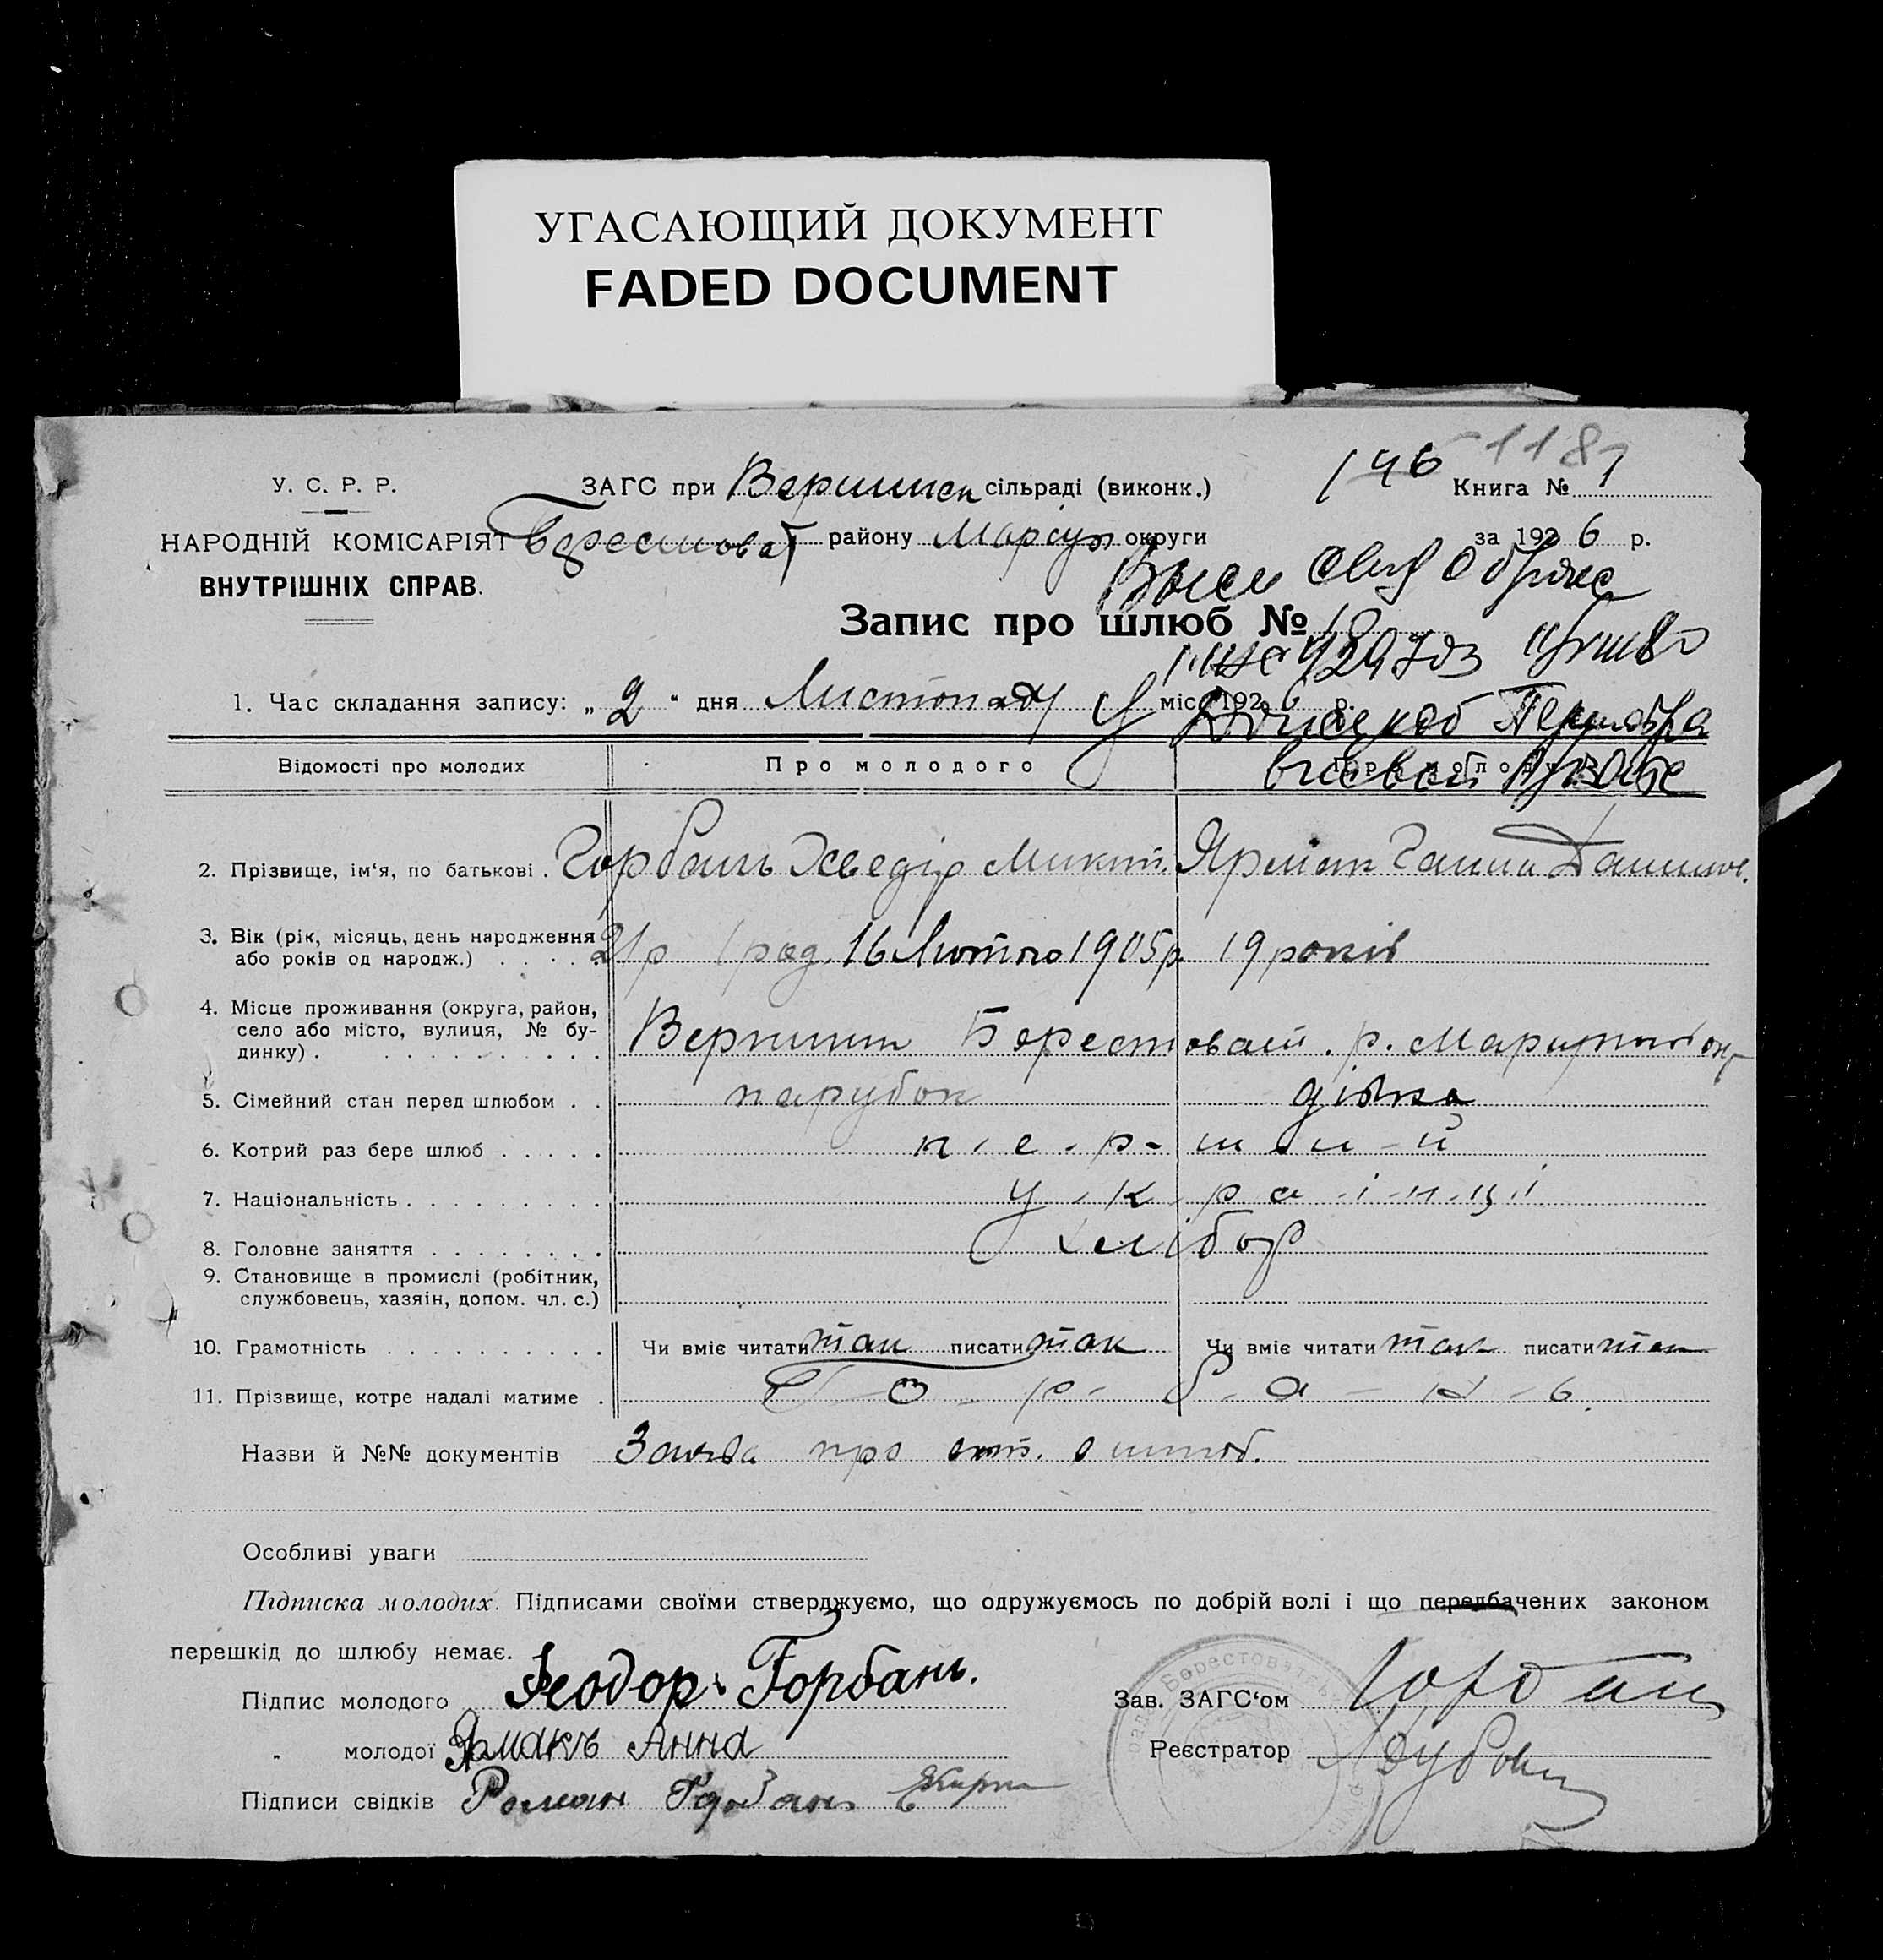 УГАСАЮЩИЙ ДОКУМЕНТ
FADED DOCUMENT
1181
146
У. С. Р. Р.
ЗАГС при Вершинск сільраді (виконк.)
Книга № 1
НАРОДНІЙ КОМІСАРІЯТ
ВНУТРІШНІХ СПРАВ.
Берестоват району Маріуп округи
за 1926 р.
Запис про шлюб № 18
1. Час складання запису: „2" дня Листопаду міс. 1926 р.
Відомості про молодих
Про молодого
2. Прізвище, ім'я, по батькові . Горбань Хведір Микит. Ярмак Ганна Данилов.
3. Вік (рік, місяць, день народження або років од народж.) . . . . 21 р (род. 16 Лютого 1905 р. 19 років
4. Місце проживання (округа, район, село або місто, вулиця, № будинку) . . . . . . . . . . . Вершин Берестоват. р. Маріупольск окр
5. Сімейний стан перед шлюбом . . парубок дівка
6. Котрий раз бере шлюб . . . . . п - е - р - ш - и - й
7. Національність . . . . . . . . . у - к - р а - ї - н - ц і
8. Головне заняття . . . . . . . . хлібор
9. Становище в промислі (робітник, службовець, хазяін, допом. чл. с.)
10. Грамотність . . . . . . . . . . Чи вміє читати так писати так Чи вміє читати так писати так
11. Прізвище, котре надалі матиме . Г - о - р - б - а - н - ь
Назви й №№ документів Заява про
Особливі уваги
Підписка молодих. Підписами своїми стверджуємо, що одружуємось по добрій волі і що передбачених законом
перешкід до шлюбу немає.
Підпис молодого Феодор Горбань.
Зав. ЗАГС'ом Горбань
„ молодої Ярмакъ Анна
Реєстратор
Підписи свідків Роман Горбань